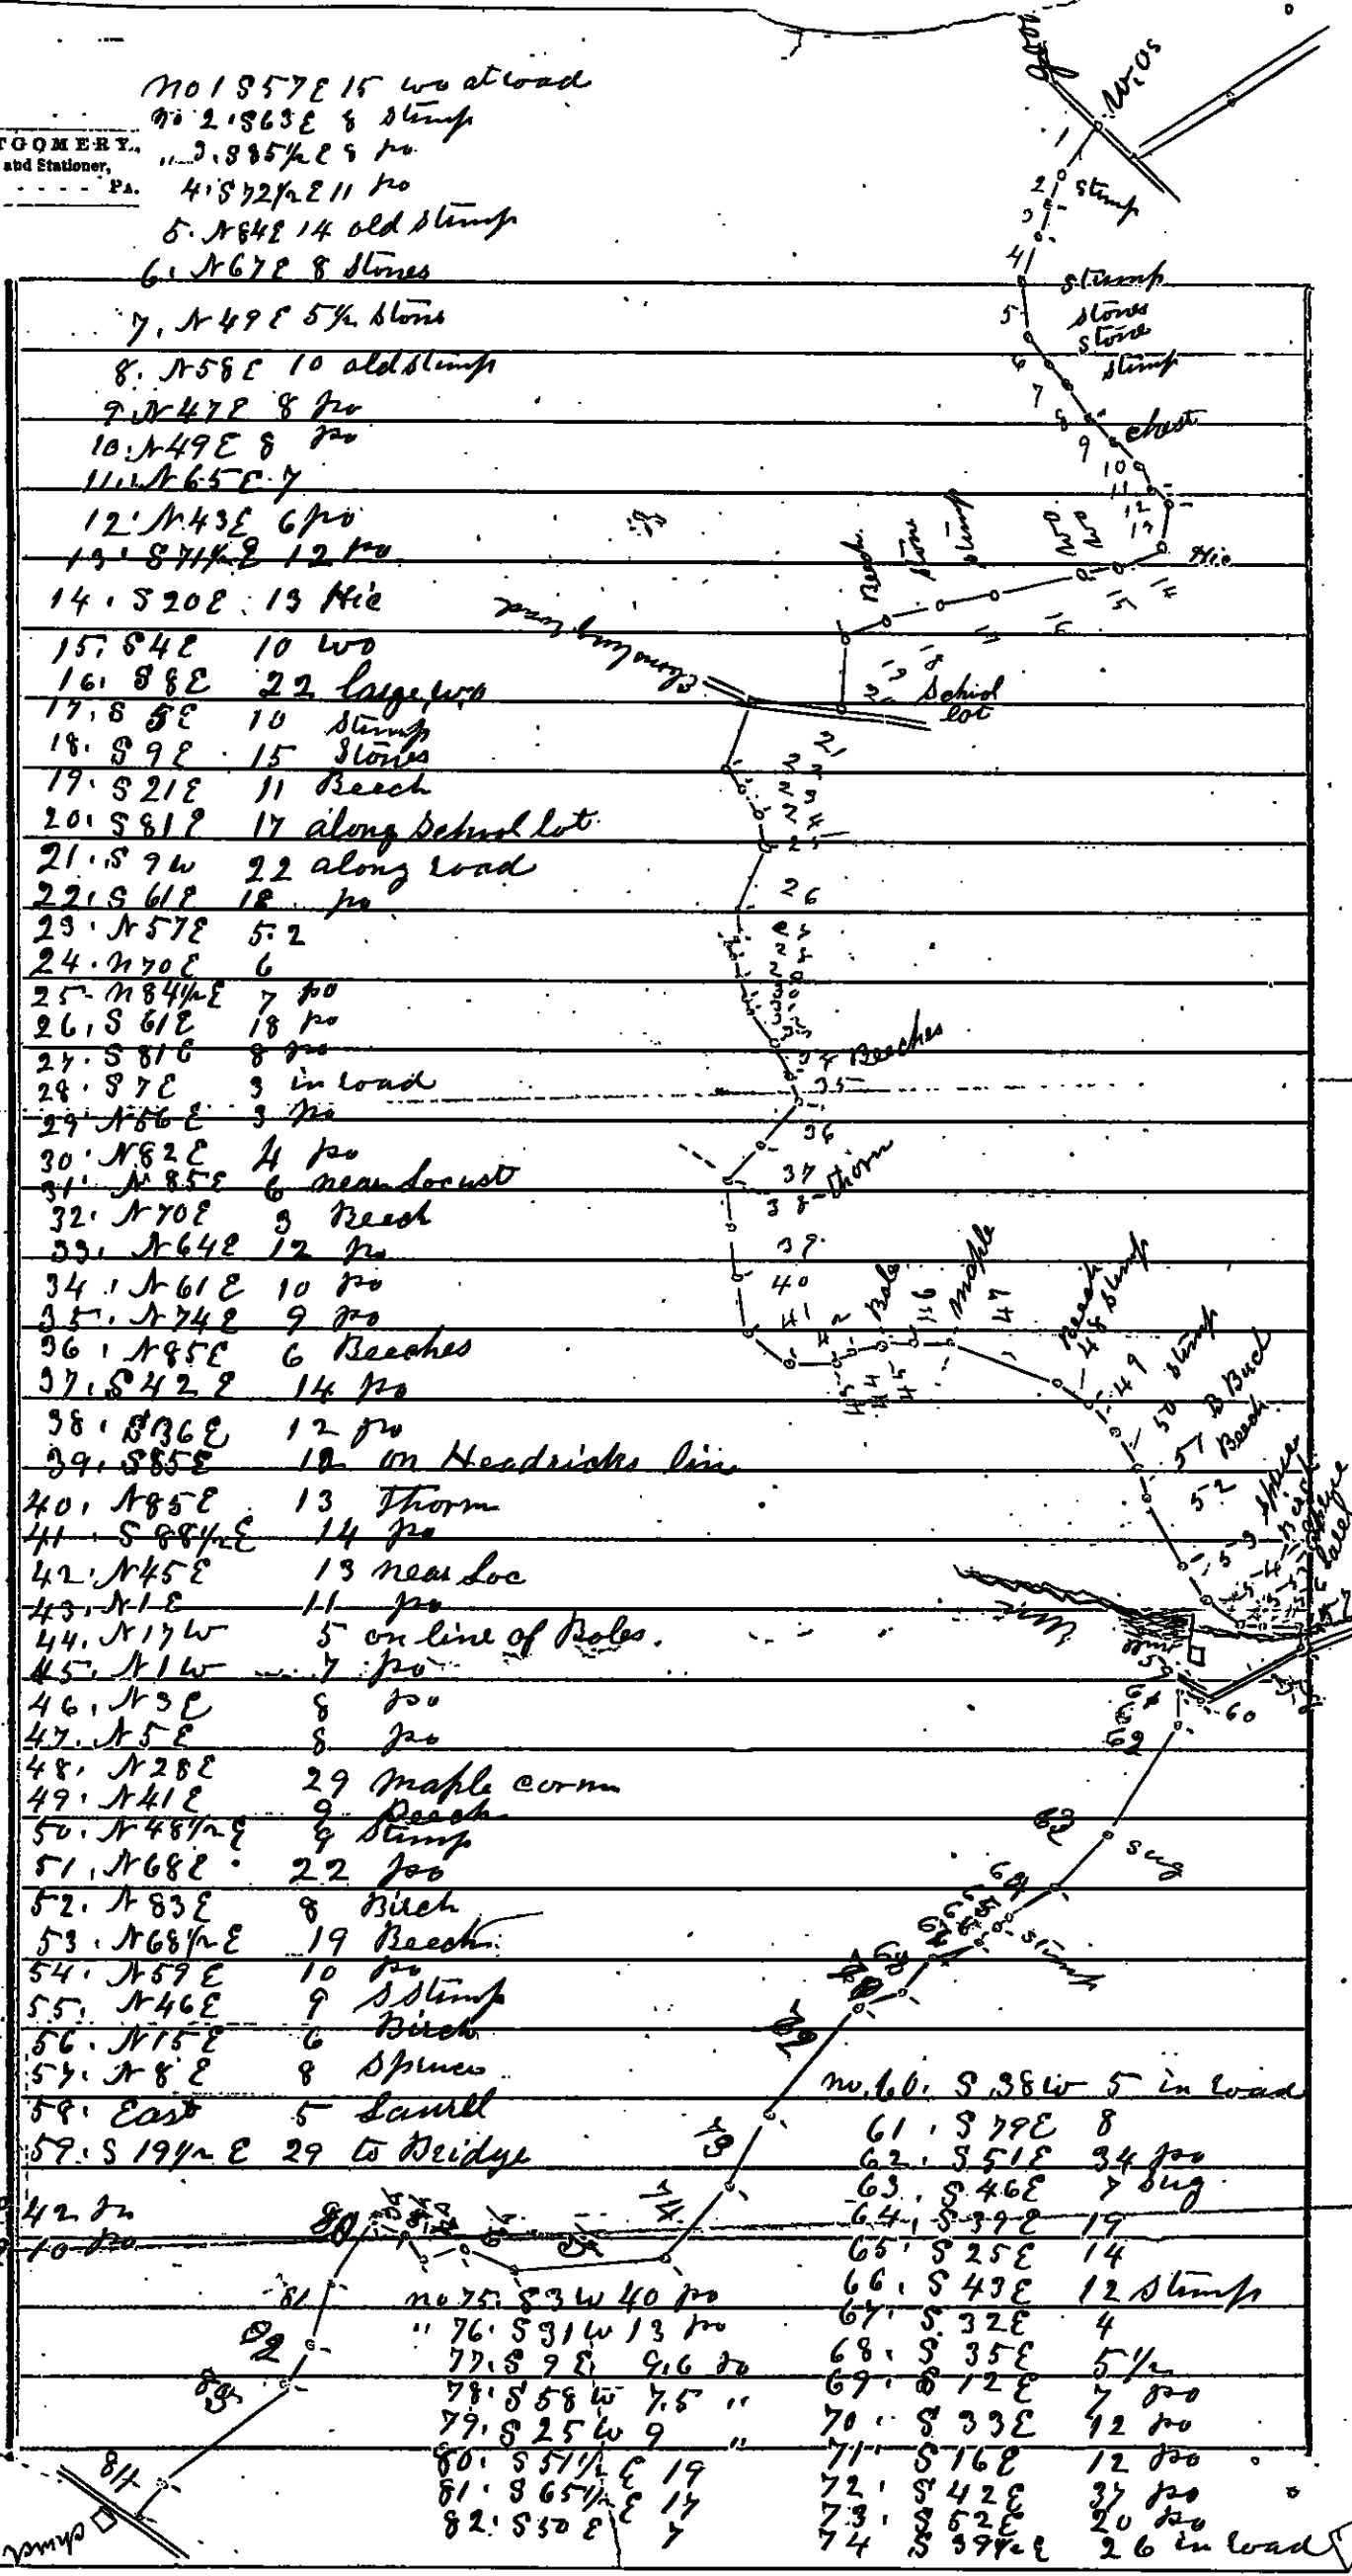 no 1 S57E 15 wo at road
no 2. S63E 8 Stump
" 3. S85½E 8 po
TGOMERY.,
and Stationer,
PA.
4. S72½E 11 po
5. N84E 14 old Stump
6. N67E 8 Stones
7. N49E 5½ Stone
8. N58E 10 old stump
9. N47E 8 po
10. N49E 8 po
11. N65E 7
12. N43E 6 po
13. S71½E 12 po
14. S20E 13 Hic
15. S4E 10 wo
16. S8E 22 large wo
17. S5E 10 Stump
18. S9E 15 Stones
19. S21E 11 Beech
20. S81E 17 along School lot
21. S9W 22 along road
22. S61E 18 po
23. N57E 5.2
24. N70E 6
25. N84½E 7 po
26. S61E 18 po
27. S81E 8 po
28. S7E 3 in road
29. N56E 3 po
30. N82E 4 po
31. N85E 6 near Locust
32. N70E 3 Beech
33. N64E 12 po
34. N61E 10 po
35. N74E 9 po
36. N85E 6 Beeches
37. S42E 14 po
38. S36E 12 po
39. S85E 12 on Headricks line
40. N85E 13 Thorn
41. S88½E 14 po
42. N45E 13 near Loc
43. N1E 11 po
44. N17W 5 on line of Boles.
45. N1W 7 po
46. N3E 8 po
47. N5E 8 po
48. N28E 29 maple corner
49. N41E 9 Beech
50. N48½E 9 Stump
51. N68E 22 po
52. N83E 8 Birch
53. N68½E 19 Beech
54. N59E 10 po
55. N46E 9 S Stump
56. N15E 6 Birch
57. N8E 8 Spruce
58. East 5 Laurel
59. S19½E 29 to Bridge
42 po
10 po
no. 60. S38W 5 in road
61. S79E 8
62. S51E 34 po
63. S46E 7 Sug
64. S39E 19
65. S25E 14
66. S43E 12 Stump
67. S32E 4
68. S35E 5½
69. S12E 7 po
70. S33E 12 po
71. S16E 12 po
72. S42E 37 po
73. S52E 20 po
74 S39½E 26 in road
no 75. S3W 40 po
" 76. S31W 13 po
77. S9E 9.6 po
78. S58W 7.5 "
79. S25W 9 "
80. S51½E 19
81. S65½E 17
82. S50E 7
road
W. Os
1
2 Stump
3
4
Stump
5 Stones
stone
6 Stump
7
8
9 chest
10
11
12
13
Hic
14
15
16
17
18
19
20
Beech
Stone
Stump
wo
wo
School
lot
21
22
23
24
25
26
34 Beeches
35
36
37
38 Thorn
39
40
41
42
Bole
46
maple
47
Beech
48 Stump
49
50 Stump
51
52 Beech
53 Spruce
60
62
63
Sug
64
Stump
73
74
80
81
82
83
84
church